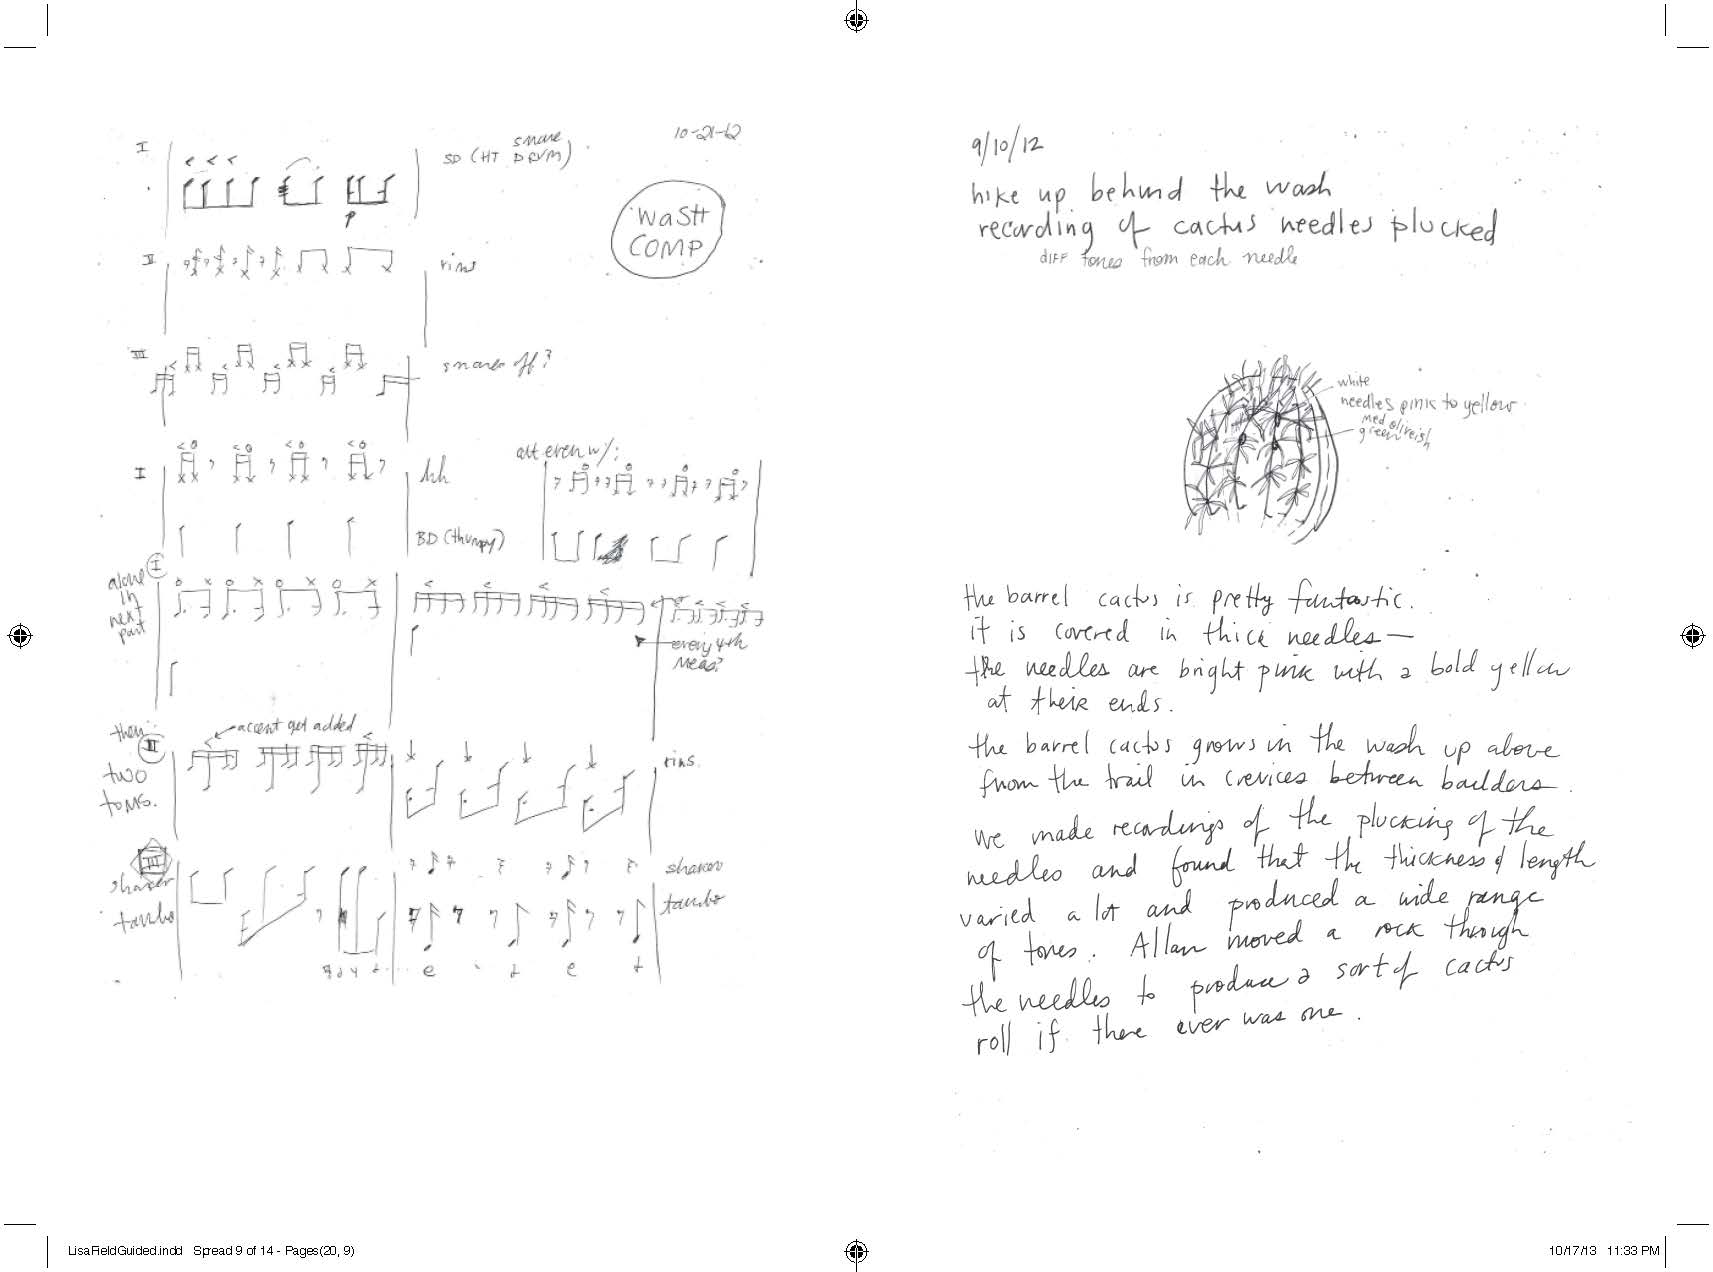 10-21-12
I
snare
SD (HT DRUM)
WASH
COMP
II
rims
III
snares off?
alt even w/:
I
hh
BD (thumpy)
I
alone
in
next
part
every 4th
meas?
then
II
accent get added
two
toms.
rims.
III
shaker
shaker
tambo
tambo
e + e +
9/10/12
hike up behind the wash
recording of cactus needles plucked
DIFF tones from each needle
white
needles pink to yellow
med oliveish
green
the barrel cactus is pretty fantastic.
it is covered in thick needles—
the needles are bright pink with a bold yellow
at their ends.
the barrel cactus grows in the wash up above
from the trail in crevices between boulders.
we made recordings of the plucking of the
needles and found that the thickness & length
varied a lot and produced a wide range
of tones. Allan moved a rock through
the needles to produce a sort of cactus
roll if there ever was one.
LisaFieldGuided.indd Spread 9 of 14 - Pages(20, 9)
10/17/13 11:33 PM